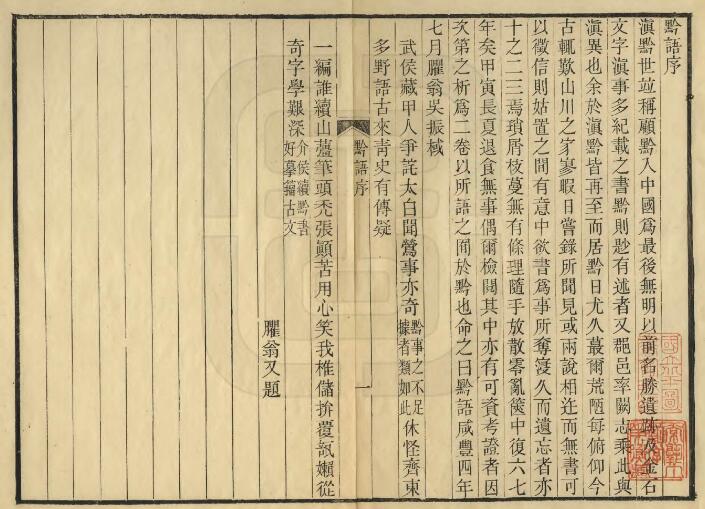 黔語序
滇黔世竝稱顧黔入中國爲最後無明以前名勝遺跡及金石
文字滇事多紀載之書黔則尟有述者又郡邑率闕志乘此與
滇異也余於滇黔皆再至而居黔日尤久蕞爾荒陋每俯仰今
古輒歎山川之寂寥暇日嘗錄所聞見或兩說相迕而無書可
以徵信則姑置之閒有意中欲書爲事所奪寖久而遺忘者亦
十之二三焉瑣屑枝蔓無有條理隨手放散零亂篋中復六七
年矣甲寅長夏退食無事偶爾檢閱其中亦有可資考證者因
次第之析爲二卷以所語之囿於黔也命之曰黔語咸豐四年
七月臞翁吳振棫
武侯藏甲人爭詫太白聞鶯事亦奇黔事之不足據者類如此休怪齊東
多野語古來青史有傳疑
黔語序
一
一編誰續山薑筆頭禿張顚苦用心笑我椎儲拚覆瓿嬾從
奇字學艱深介侯續黔書好摹籀古文
臞翁又題